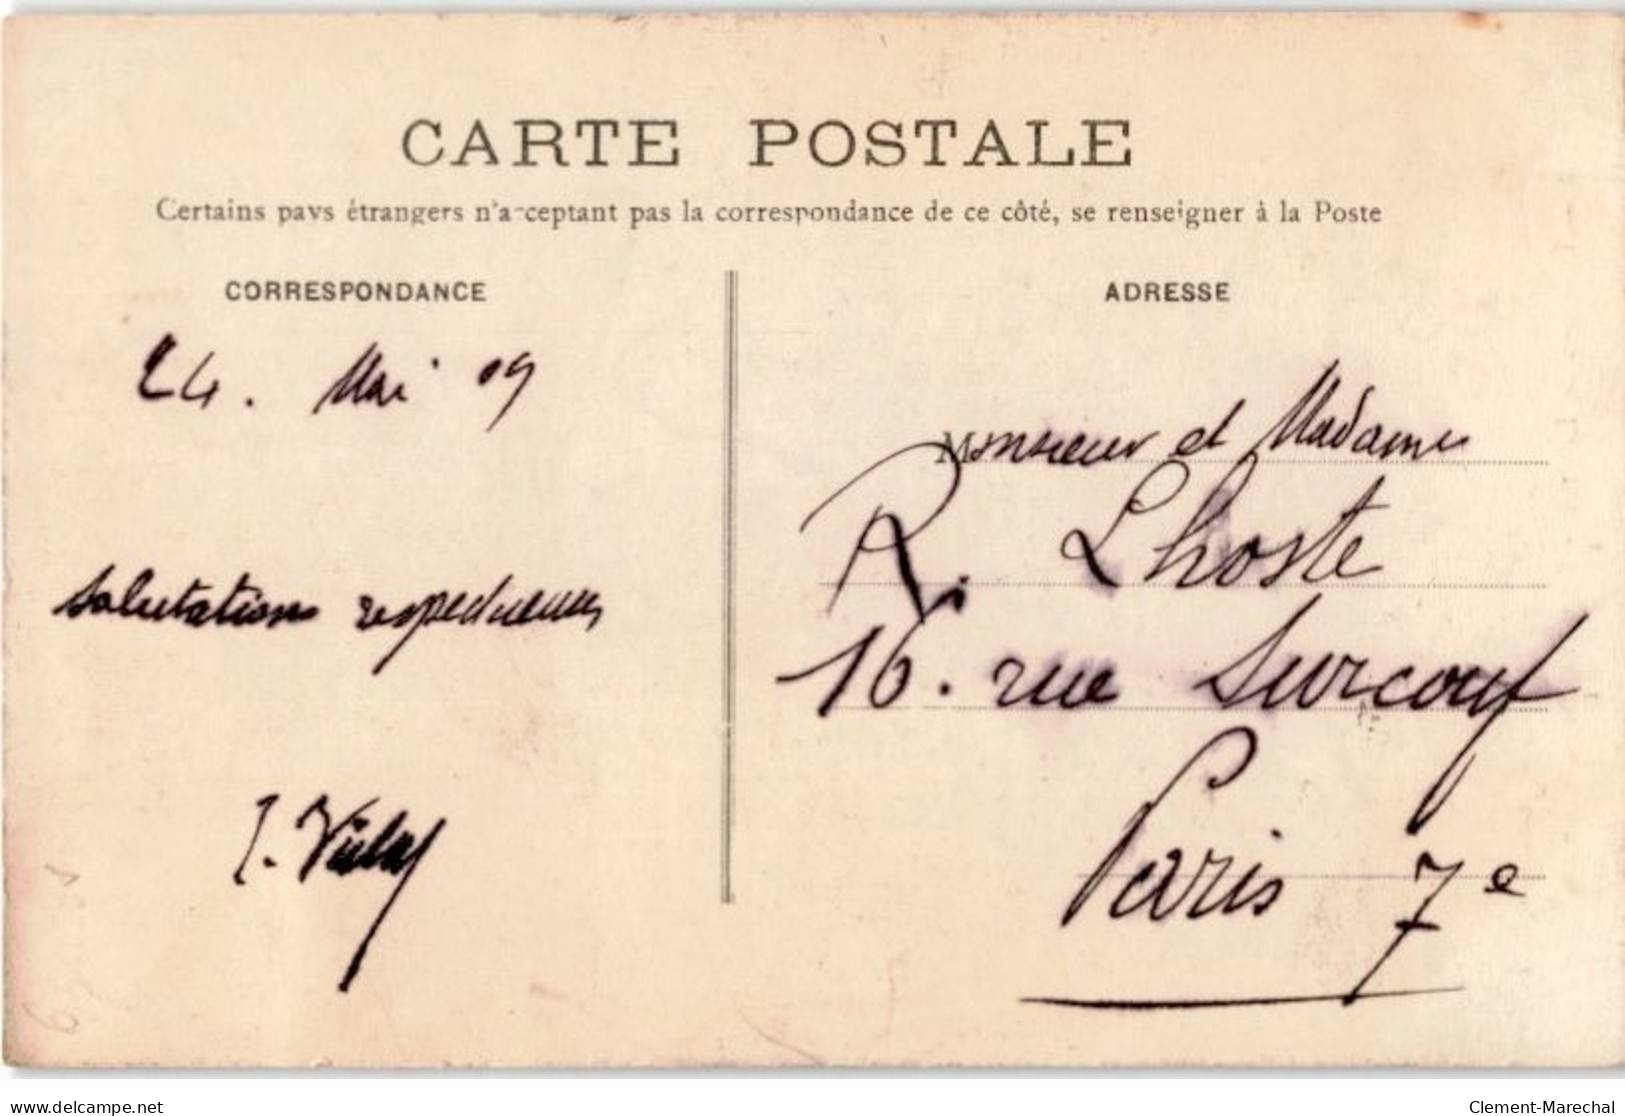 CARTE POSTALE
Certains pays étrangers n'acceptant pas la correspondance de ce côté, se renseigner à la Poste
CORRESPONDANCE
24. Mai 09
Salutations respectueuses
ADRESSE
Monsieur et Madame
R. Lhoste
16. rue Surcouf
Paris 7e
delcampe.net
Clement-Marechal